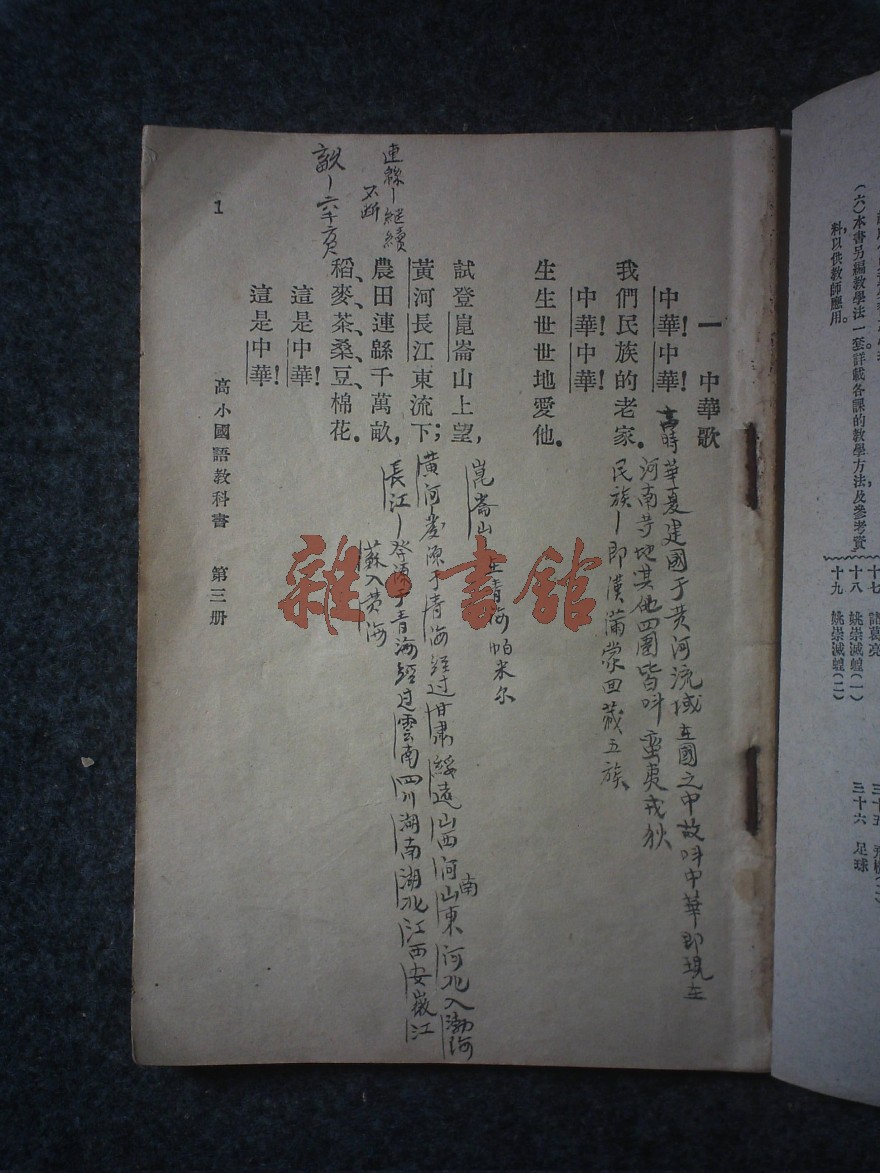 (六)本書另編教學法一套,詳載各課的教學方法及參考資
料,以供教師應用。
十七 諸葛亮
十八 姚崇滅蝗(一)
十九 姚崇滅蝗(二)
三十六 足球
一 中華歌
中華!中華!
我們民族的老家。
中華!中華!
生生世世地愛他。
試登崑崙山上望,
黃河長江東流下;
農田連緜千萬畝,
稻、麥、茶、桑、豆、棉花。
這是中華!
這是中華!
時華夏建國于黄河流域在國之中故叫中華即現在
河南等地其他四圍皆叫蛮夷戎狄
民族—即漢滿蒙回藏五族
崑崙山 在青海帕米尔
黄河—發源于青海經过甘肅綏遠山西河南山東河北入渤海
長江—發源于青海經过雲南四川湖南湖北江西安徽江
蘇入黄海
連緜—継續
不断
高小國語教科書 第三册
1
雜·書館